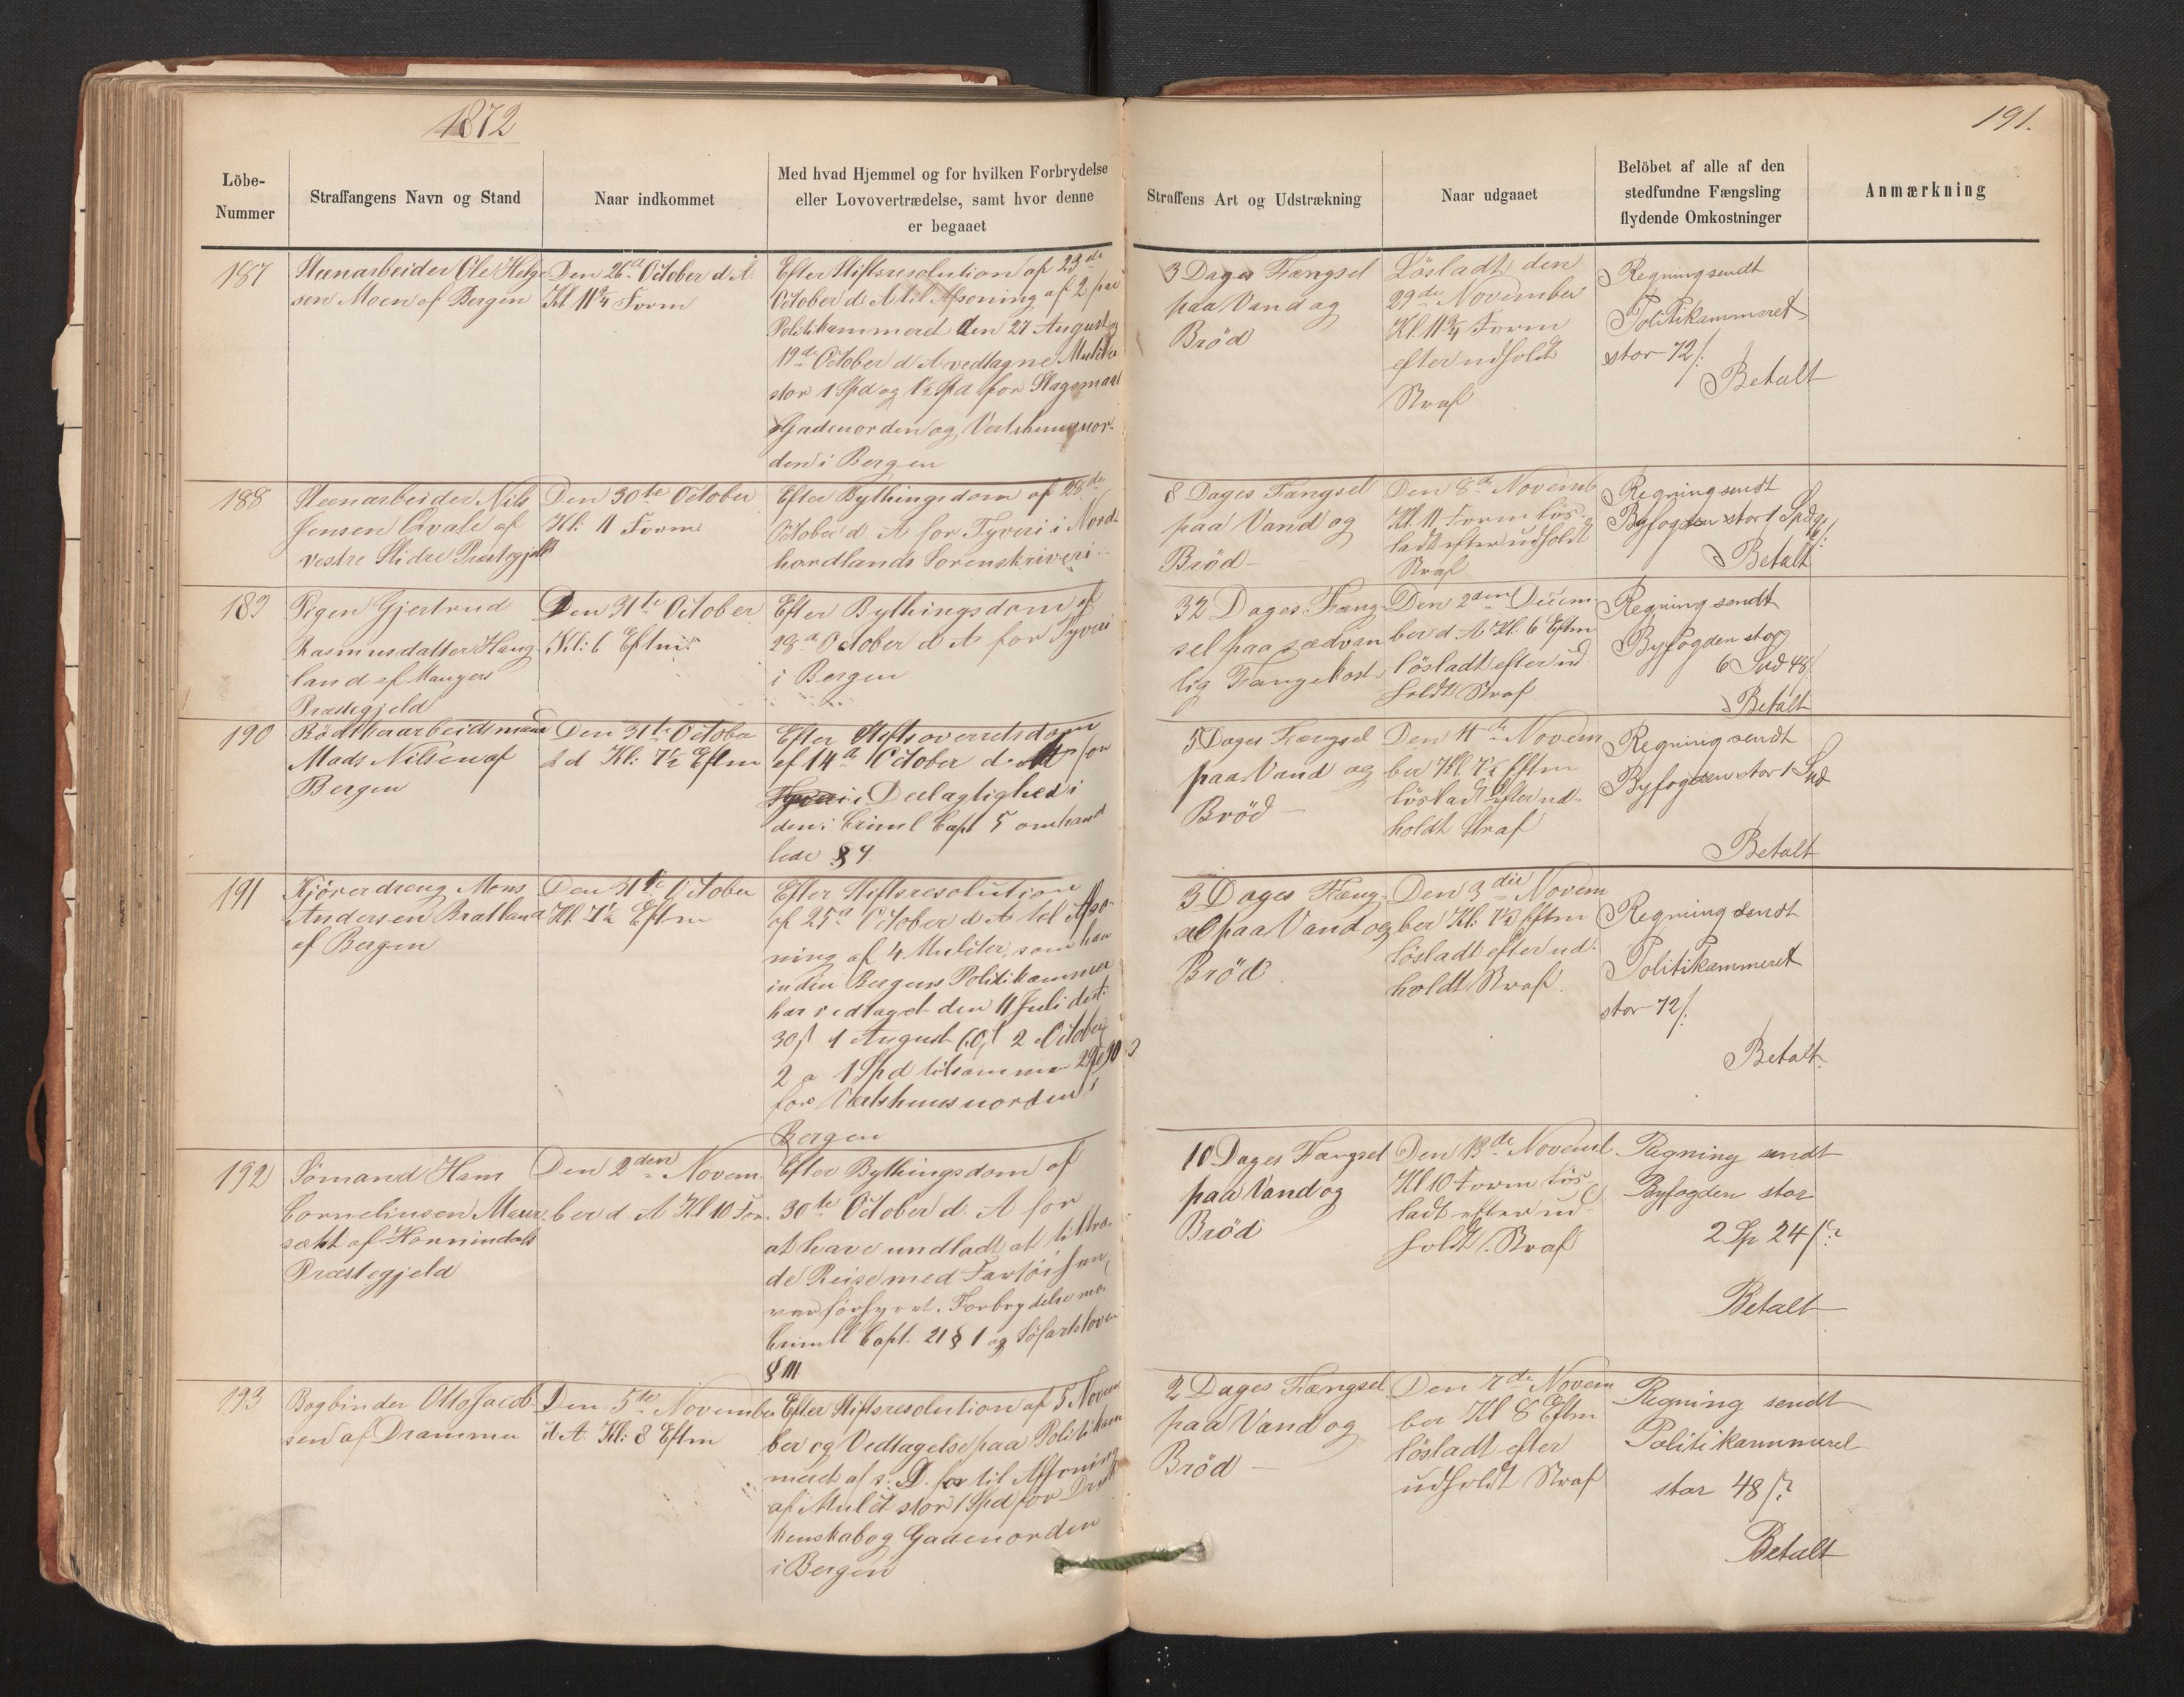 1872
191.
Löbe-
Nummer
Straffangens Navn og Stand
Naar indkommet
Med hvad Hjemmel og for hvilken Forbrydelse
eller Lovovertrædelse, samt hvor denne
er begaaet
Straffens Art og Udstrækning
Naar udgaaet
Belöbet af alle af den
stedfundne Fængsling
flydende Omkostninger
Anmærkning
187
Steenarbeider Ole Helge
sen Moen af Bergen
Den 26de October d. A.
Kl 11¾ Form
Efter Stiftsresolution af 23de
October d. A til Afsoning af 2 paa
Politikammeret den 27 August og
19de October d A vedtagne Mulkter
stor 1 Spd og 1½ Spd for Slagsmaal
Gadeuorden og Vertshuusuor-
den i Bergen
3 Dages Fængsel
paa Vand og
Bröd
Lösladt den
29de November
Kl. 11¾ Form
efter udholdt
Straf
Regning sendt
Politikammeret
stor 72/:
Betalt
188
Steenarbeider Nils
Jensen Qvale af
vestre Slidre Præstegjeld
Den 30te October
Kl: 11 Form
Efter Bythingsdom af 28de
October d A for Tyveri i Nord-
hordlands Sorenskriveri
8 Dages Fængsel
paa Vand og
Bröd -
Den 8de Novemb
Kl. 11 Form lös-
ladt efter udholdt
Straf
Regning sendt
Byfogden stor 1 Spd
Betalt
189
Pigen Gjertrud
Rasmusdatter Haug-
land af Mangers
Præstegjeld
Den 31te October
Kl: 6 Eftm:
Efter Bythingsdom af
28de October d A for Tyveri
i Bergen
32 Dages Fæng-
sel paa sædvan
lig Fangekost
Den 2den Decem-
ber d. A Kl. 6 Eftm
lösladt efter ud
holdt Straf
Regning sendt
Byfogden stor
6 Spd 48/
Betalt
190
Mads Nilsen af
Bergen
Den 31te October
Kl: 7½ Eftm
Efter Stiftsoverretsdom
af 14de October d. A for
Deelagtighed i
den i Criml Capt 5 omhand
lede § 4
5 Dages Fængsel
paa Vand og
Bröd -
Den 4de Novem
ber Kl. 7½ Eftm
lösladt efter ud-
holdt Straf
Regning sendt
Byfogden stor 1 Spd
Betalt
191
Kjörerdreng Mons
Andersen Bratland
af Bergen
Den 31te October
Kl 7½ Eftm
Efter Stiftsresolution
af 25de October d A til Afso-
ning af 4 Mulkter, som han
inden Bergens Politikammer
har vedtaget den 11 Juli
30/ 1 August 60/ 2 October
2 a 1 Spd tilsammen 2 Spd 90
for Vertshuusuorden i
Bergen
3 Dages Fæng-
sel paa Vand og
Bröd
Den 3die Novem
ber Kl: 7½ Eftm
lösladt efter ud-
holdt Straf.
Regning sendt
Politikammeret
stor 72/:
Betalt.
192
Sömand Hans
Corneliusen
sæht af Hornindals
Præstegjeld
Den 2den Novem-
ber d. A Kl 10 For.
Efter Bythingsdom af
30te October d: A for
at have undladt at tiltræ-
de Reise med Fartöi han
var forhyret. Forbrydelse mod
Criml Capt. 21 § 1 og Söfartsloven
§ 111
10 Dages Fængsel
paa Vand og
Bröd
Den 13de Novemb
Kl 10 Form lös-
ladt efter ud-
holdt Straf
Regning sendt
Byfogden stor
2 Sp 24/
Betalt
193
Bogbinder Otto Jacob-
sen af Drammen
Den 5te November
d. A. Kl: 8 Eftm
Efter Stiftsresolution af 5 Novem
ber og Vedtagelse paa Politikam
meret af s: D. for til Afsoning
af Mulct stor 1 Spd for Druk
kenskab og Gadeuorden
i Bergen
2 Dages Fængsel
paa Vand og
Bröd -
Den 7de Novem
ber Kl 8 Eftm
lösladt efter
udholdt Straf
Regning sendt
Politikammeret
stor 48/
Betalt